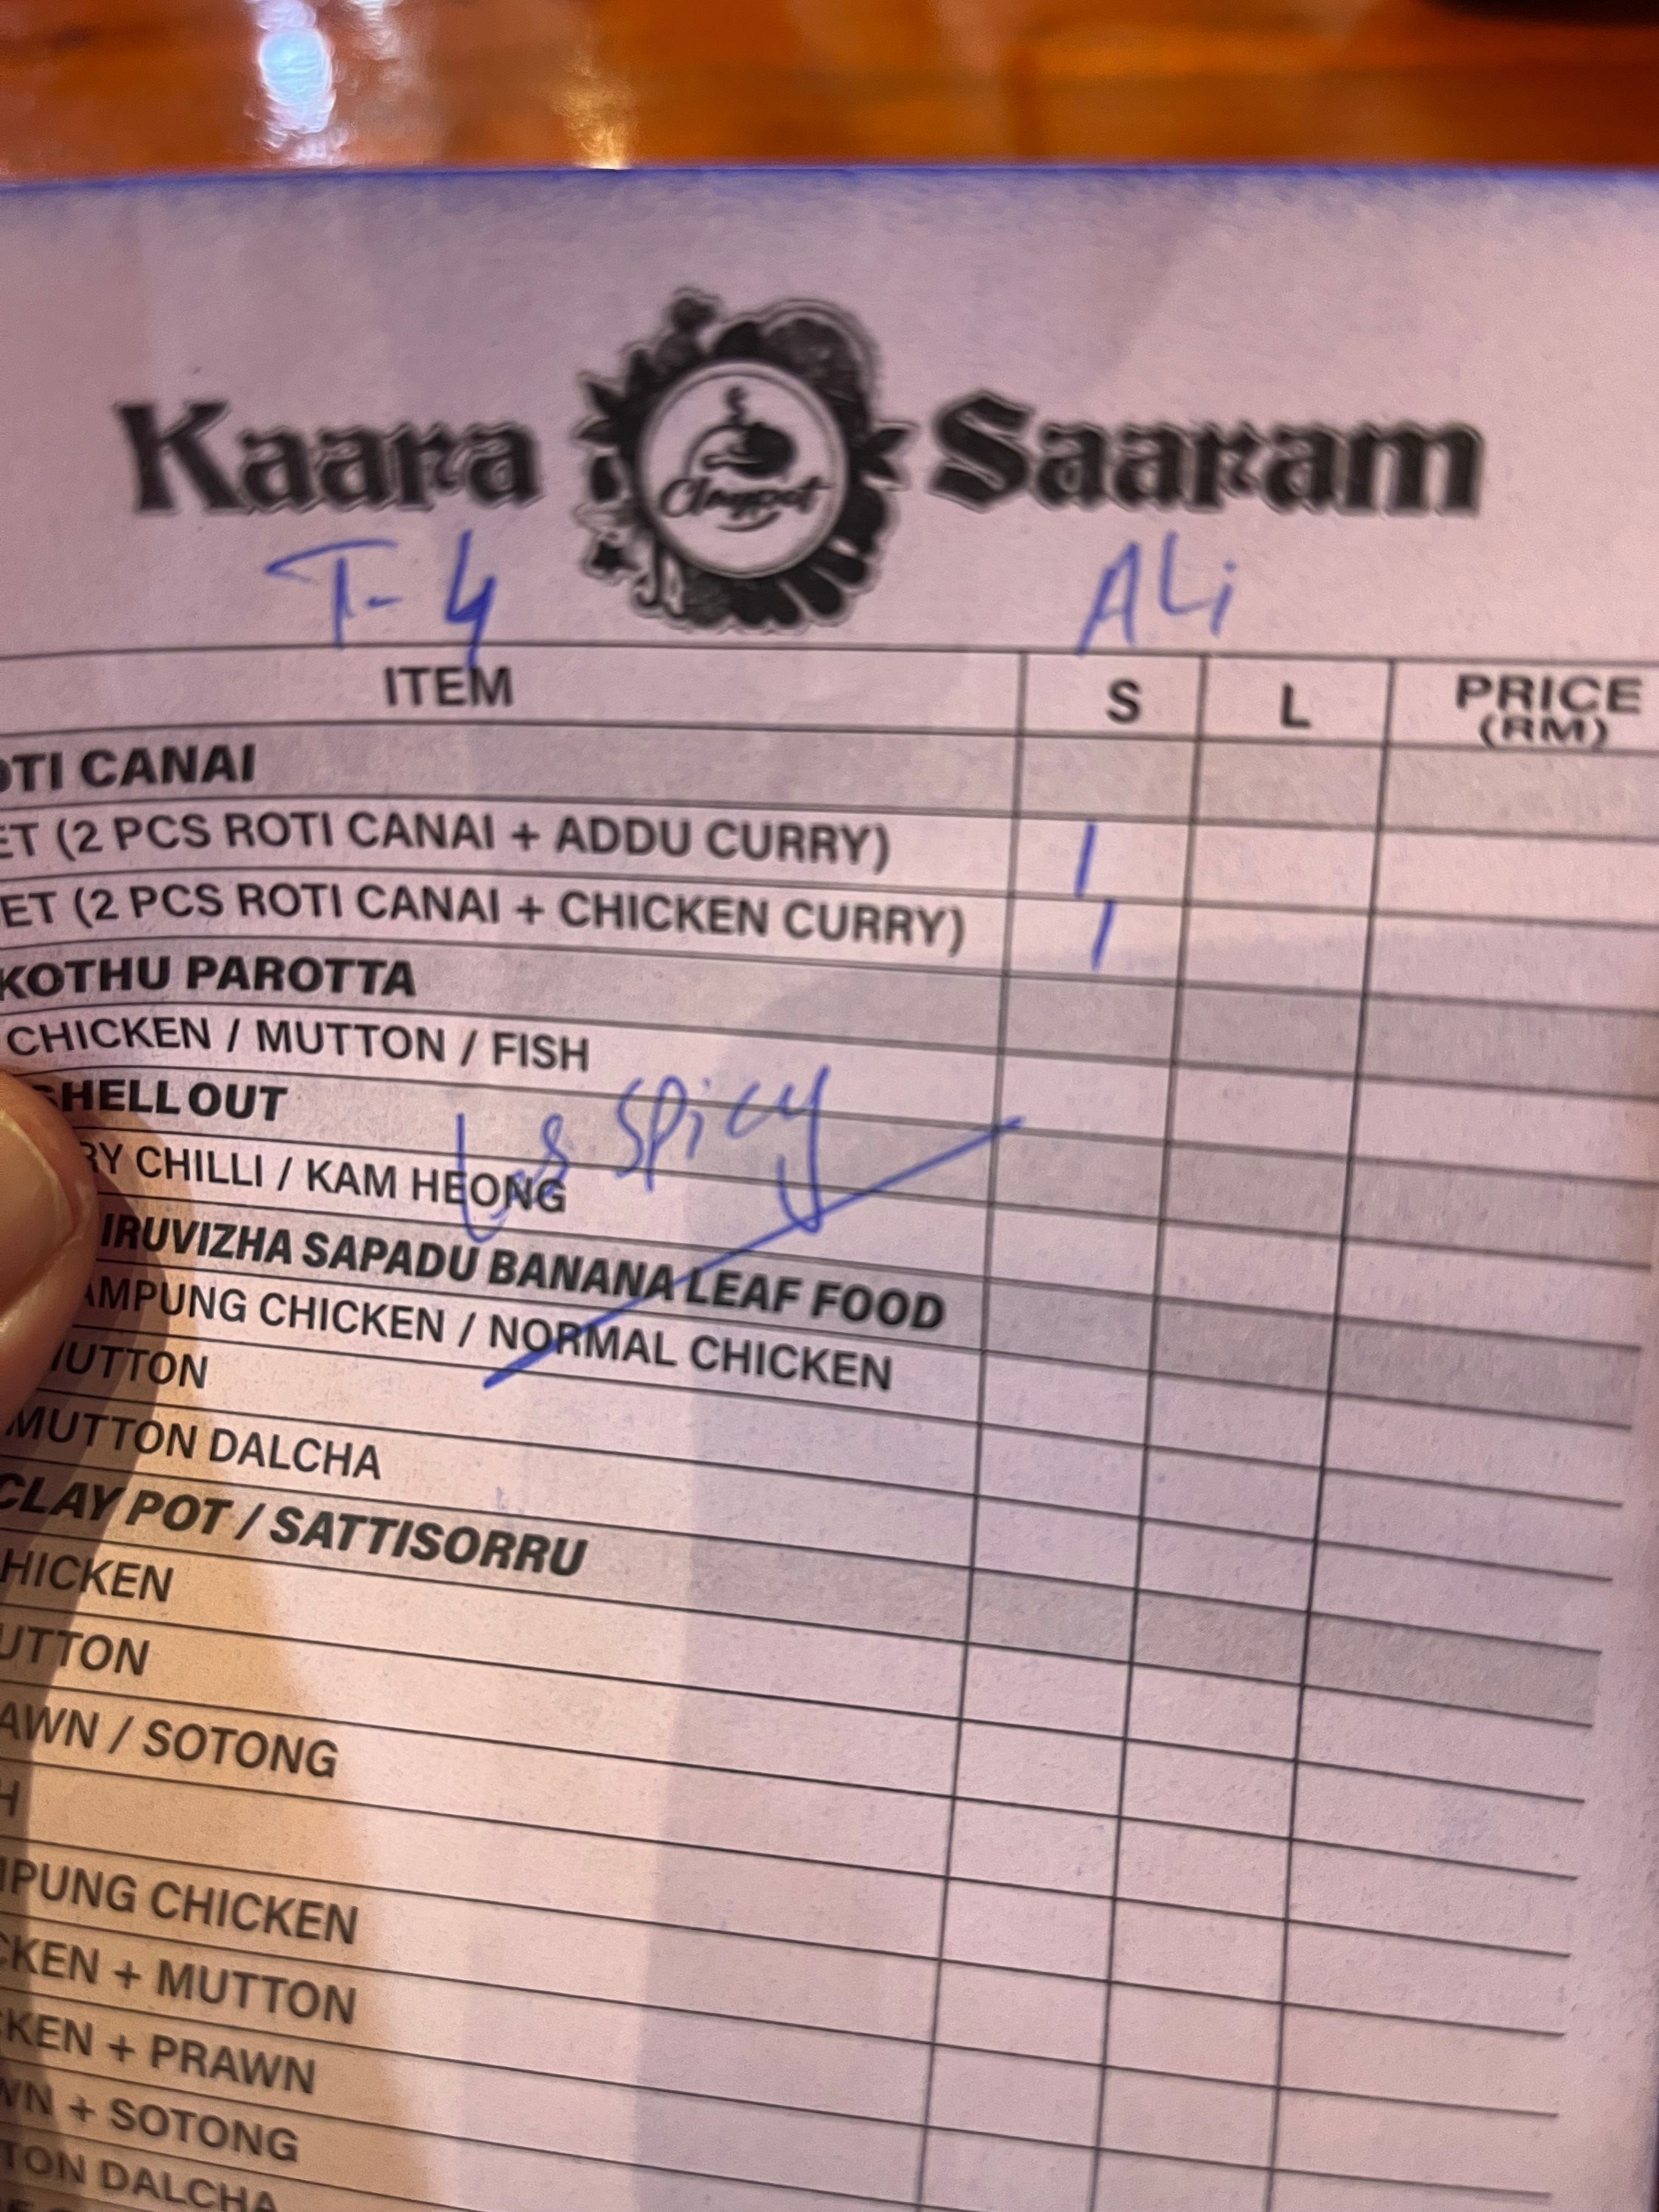 Kaara Claypot Saaram
T-4 ALi
ITEM S L PRICE (RM)
OTI CANAI
ET (2 PCS ROTI CANAI + ADDU CURRY) 1
ET (2 PCS ROTI CANAI + CHICKEN CURRY) 1
KOTHU PAROTTA
CHICKEN / MUTTON / FISH
SHELL OUT
Spicy
RY CHILLI / KAM HEONG
IRUVIZHA SAPADU BANANA LEAF FOOD
AMPUNG CHICKEN / NORMAL CHICKEN
MUTTON
MUTTON DALCHA
CLAY POT / SATTISORRU
HICKEN
UTTON
AWN / SOTONG
H
MPUNG CHICKEN
CKEN + MUTTON
CKEN + PRAWN
WN + SOTONG
TON DALCHA